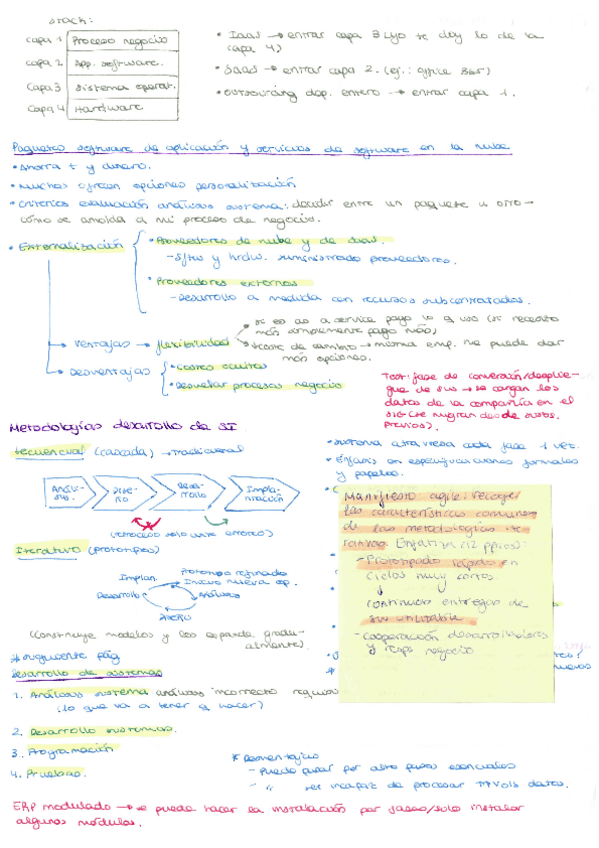 stack:
capa 1 Proceso negocio
capa 2 App. software.
capa 3 Sistema operat.
capa 4 Hardware
• IaaS → entrar capa 3 (yo te doy lo de la
capa 4)
• SaaS → entrar capa 2. (ej.: office 365)
• outsourcing dep. entero → entrar capa 1.
Paquetes software de aplicación y servicios de software en la nube
• Ahorra t y dinero.
• Muchos ofrecen opciones personalización
• Criterios evaluación análisis sistema: decidir entre un paquete u otro →
cómo se amolda a mi proceso de negocio.
• Externalización
• Proveedores de nube y de
- s/tw y hrdw. suministrado proveedores.
• Proveedores externos
- Desarrollo a medida con recursos subcontratados.
→ ventajas → flexibilidad
• si es as a service pago lo q uso (si necesito
más simplemente pago más)
• coste de cambio → misma emp. me puede dar
más opciones.
→ Desventajas
• costes ocultos
• Desvelar procesos negocio
Test: fase de conversión/desplie-
gue de sw → se cargan los
datos de la compañía en el
sist (te migran desde
previos).
Metodologías desarrollo de SI
secuencial (cascada) → tradicional
Análi-
sis.
Dise-
ño
Desa-
rrollo
Implan-
tación
(retroceso solo errores)
• sistema atraviesa cada fase 1 vez.
• Énfasis en especificaciones formales
y papeleo.
Iterativo (prototipos)
Prototipo refinado
Inicio nueva op.
Implan.
Desarrollo
Análisis
Diseño
(construye modelos y los expande gradu-
almente)
Manifiesto agile: recoger
las características comunes
de las metodologías ite-
rativas. Enfatiza (12 ppios):
- Prototipado rápido en
ciclos muy cortos.
↓
continuas entregas de
sw utilizable
- Cooperación desarrolladores
y reps negocio
* siguiente pág
Desarrollo de sistemas
1. Análisis sistema análisis incorrecto
(lo que va a tener q hacer)
2. Desarrollo sistemas.
3. Programación
4. Pruebas.
* Desventajas
- puede pasar por alto pasos esenciales
- " ser incapaz de procesar datos.
ERP modulado → se puede hacer la instalación por fases/solo instalar
algunos módulos.